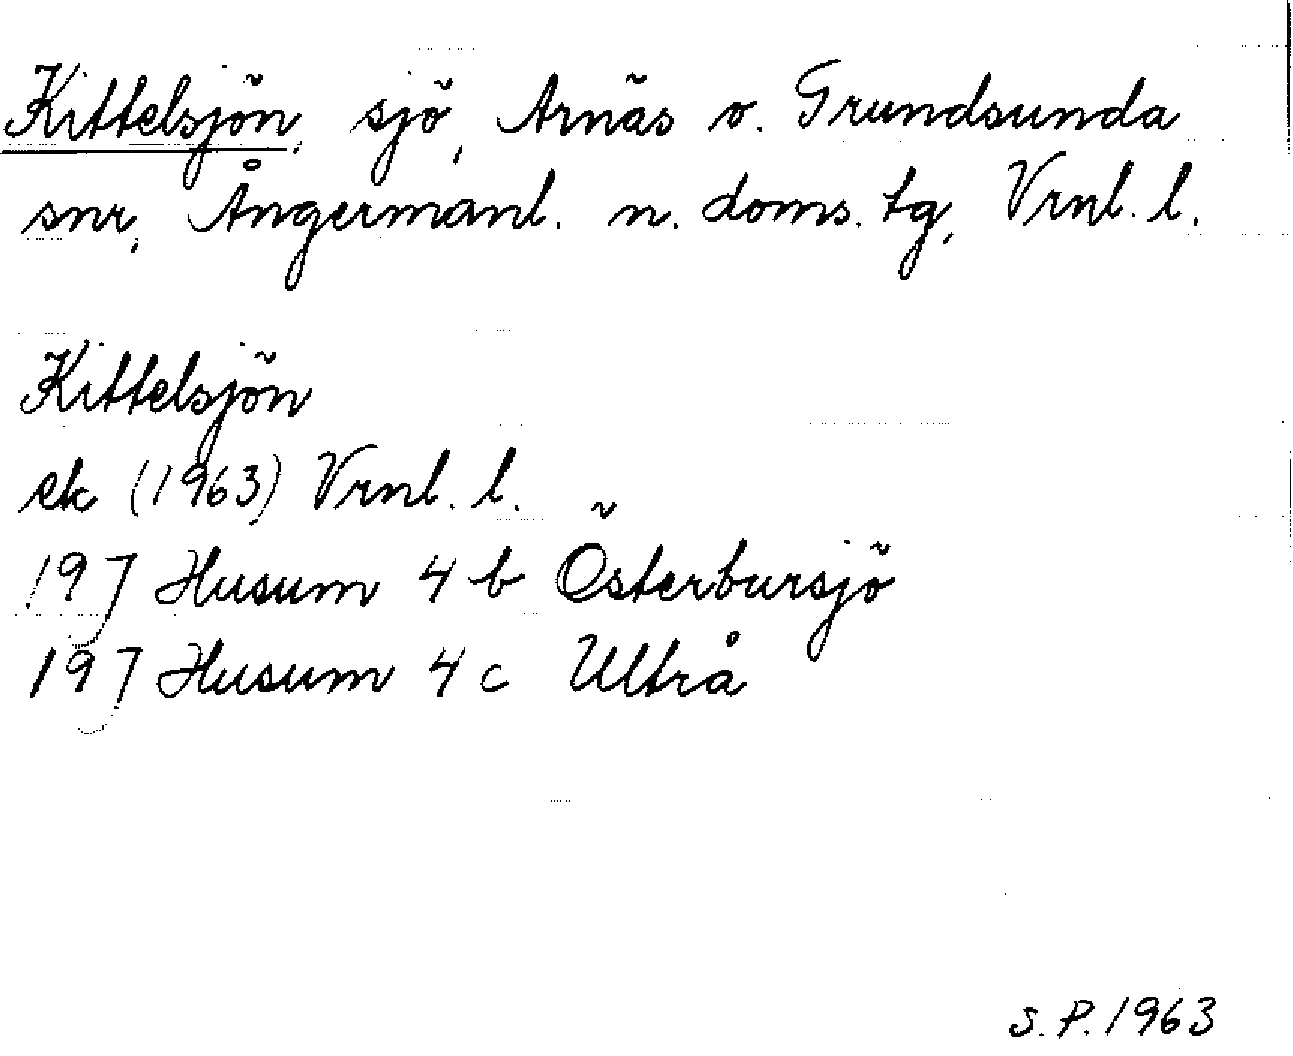 Kittelsjön, sjö, Arnäs o. Grundsunda
snr, Ångermanl. n. doms. tg, Vrnl. l.
Kittelsjön
ek (1963) Vrnl. l.
19J Husum 4 b Österbursjö
19J Husum 4 c Ultrå
S. P. 1963